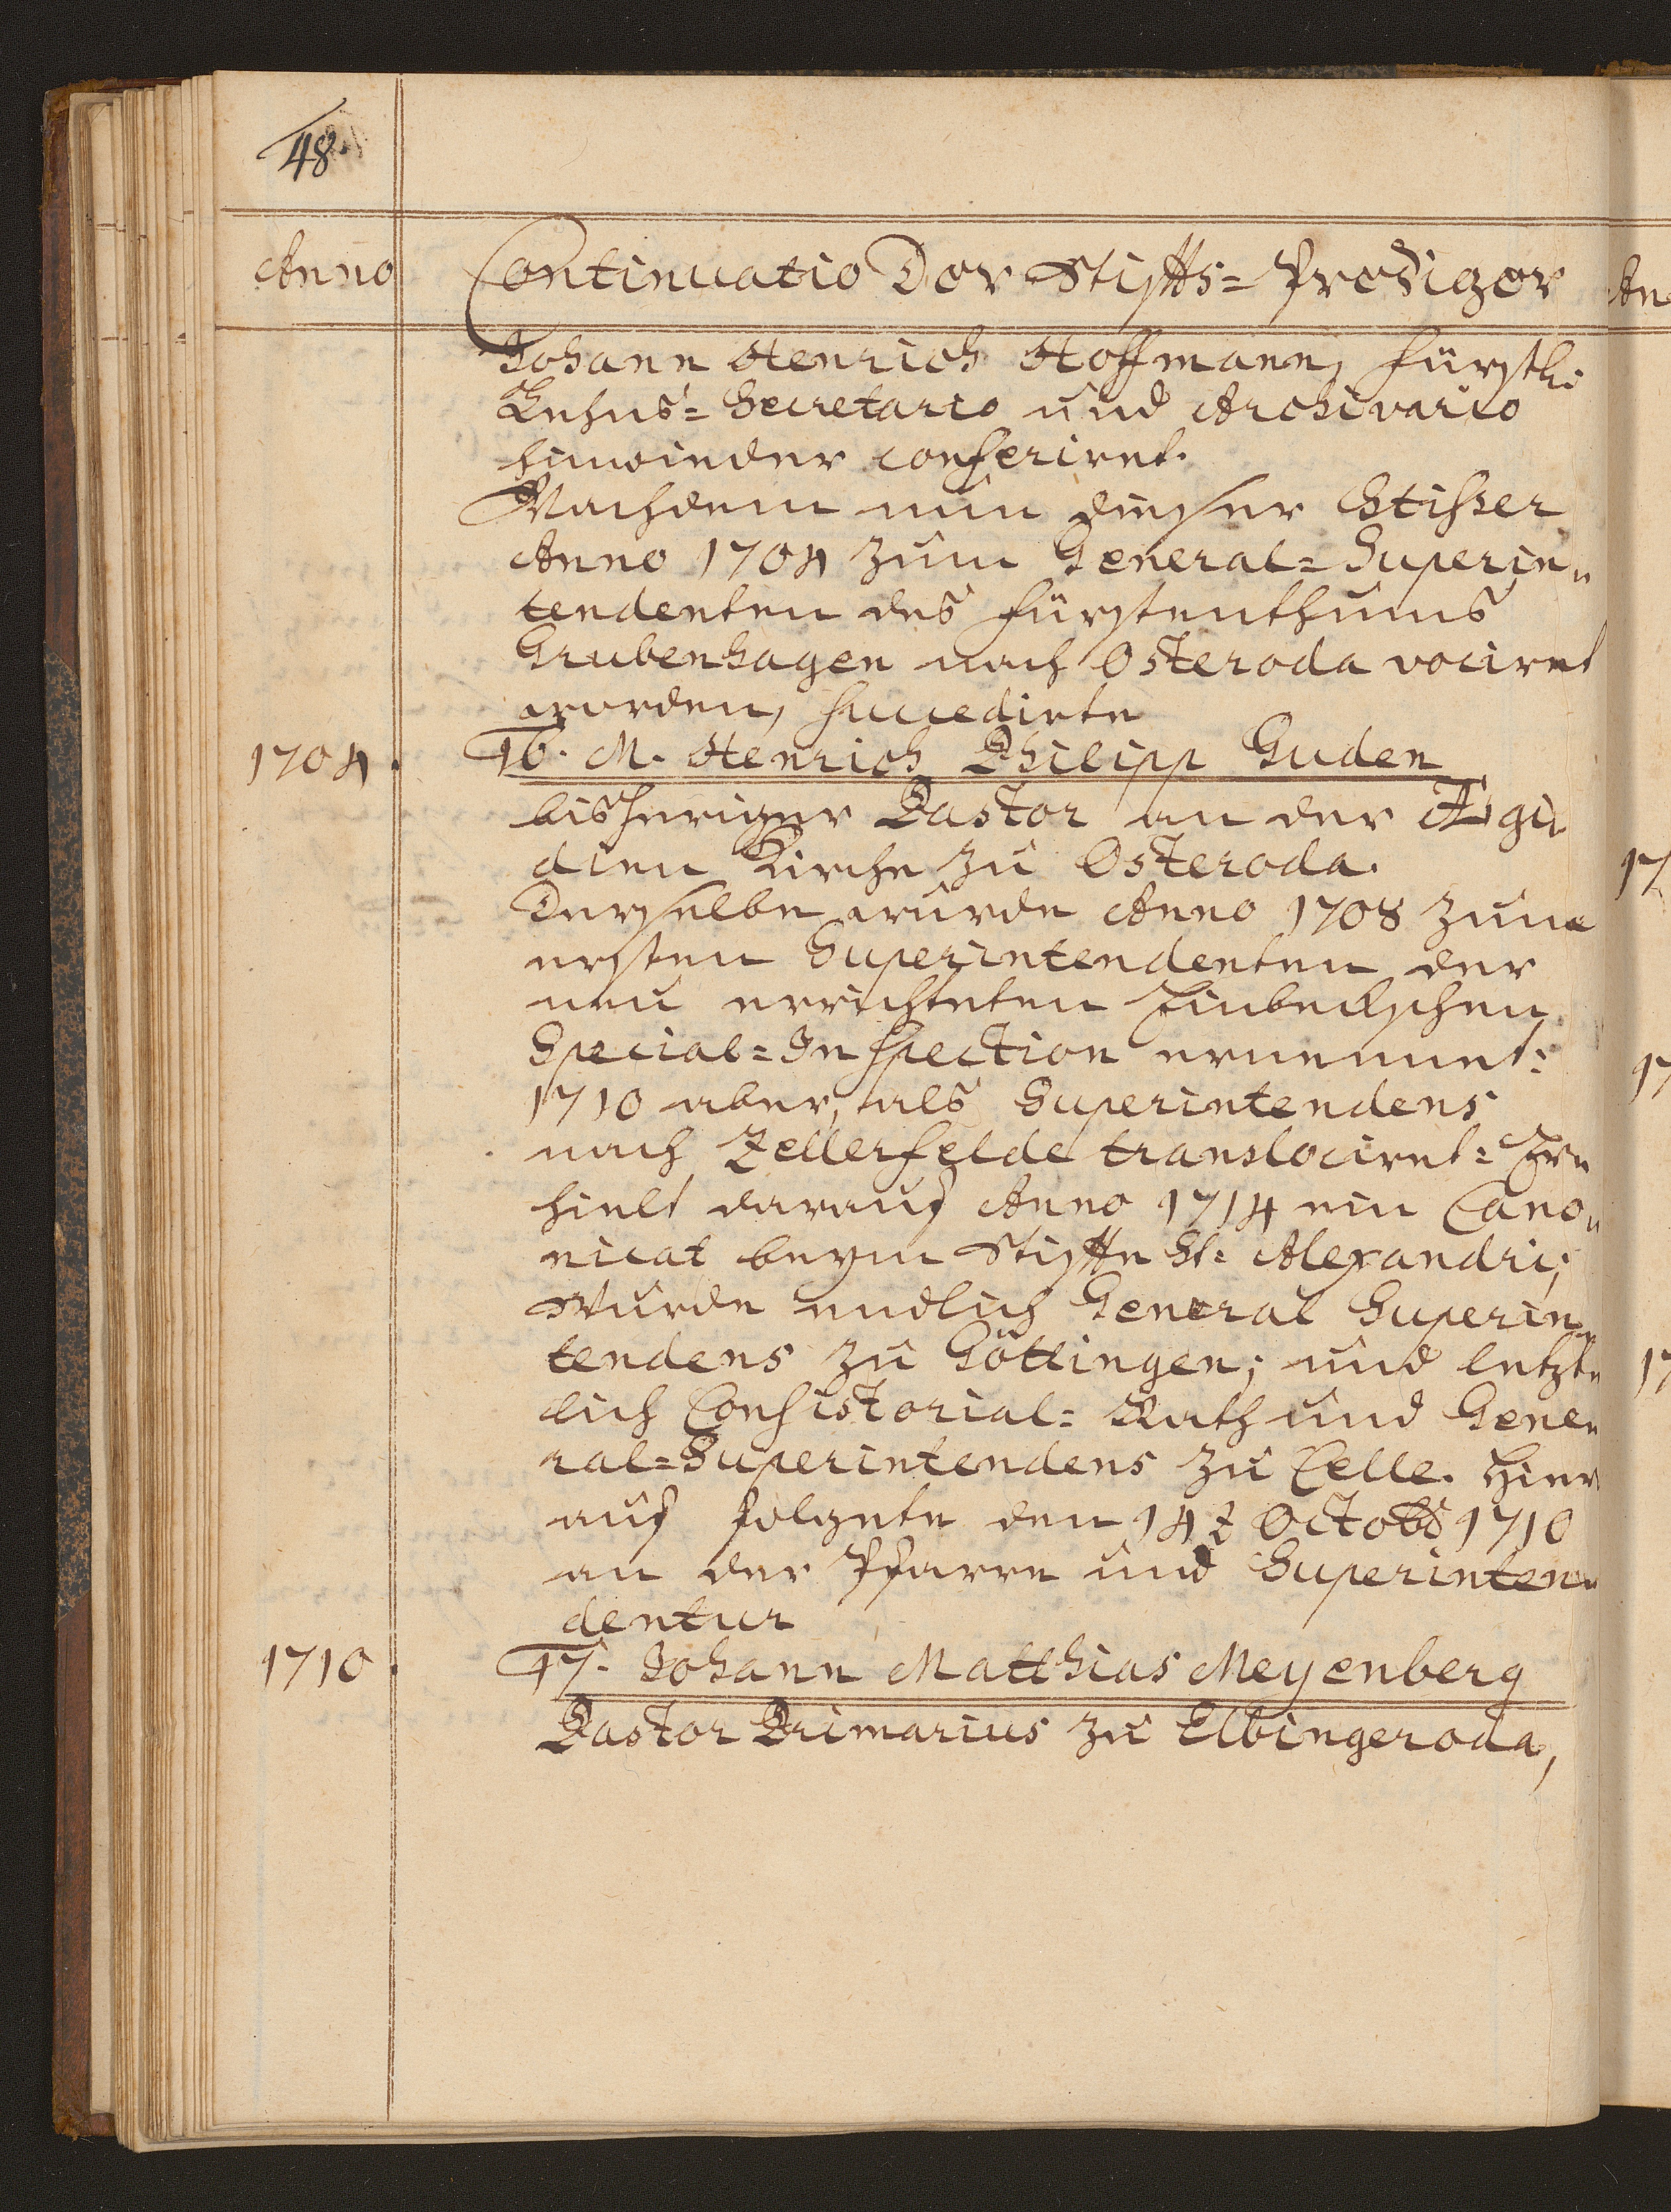 48.
Anno Continuatio Der Stiffts=Prediger
Johann Henrich Hoffmann, Fürstl:
Lehns=Secretario und Archivario
hinwieder conferiret.
Nachdem nun dieser Stisser
Anno 1704 zum General=Superin„
tendenten des Fürstenthums
Grubenhagen nach Osteroda vociret
worden, succedirte
1704. 16. M. Henrich Philipp Guden
bisheriger Pastor an der Ægi„
dien Kirche zu Osteroda.
Derselbe wurde Anno 1708 zum
ersten Superintendenten der
neu errichteten Einbeckschen
Special=Inspection ernennet:
1710 aber, als Superintendens
nach Zellerfelde translociret: Er„
hielt darauf Anno 1714 ein Cano„
nicat beym Stiffte St: Alexandri;
Wurde endlich General Superin„
tendens zu Göttingen; und letzt„
lich Consistorial=Rath und Gene„
ral=Superintendens zu Celle. Hier
auf folgete den 14t Octobr 1710
an der Pfarre und Superinten„
dentur
1710. 17. Johann Matthias Meyenberg
Pastor Primarius zu Elbingeroda,
An
17
17
17